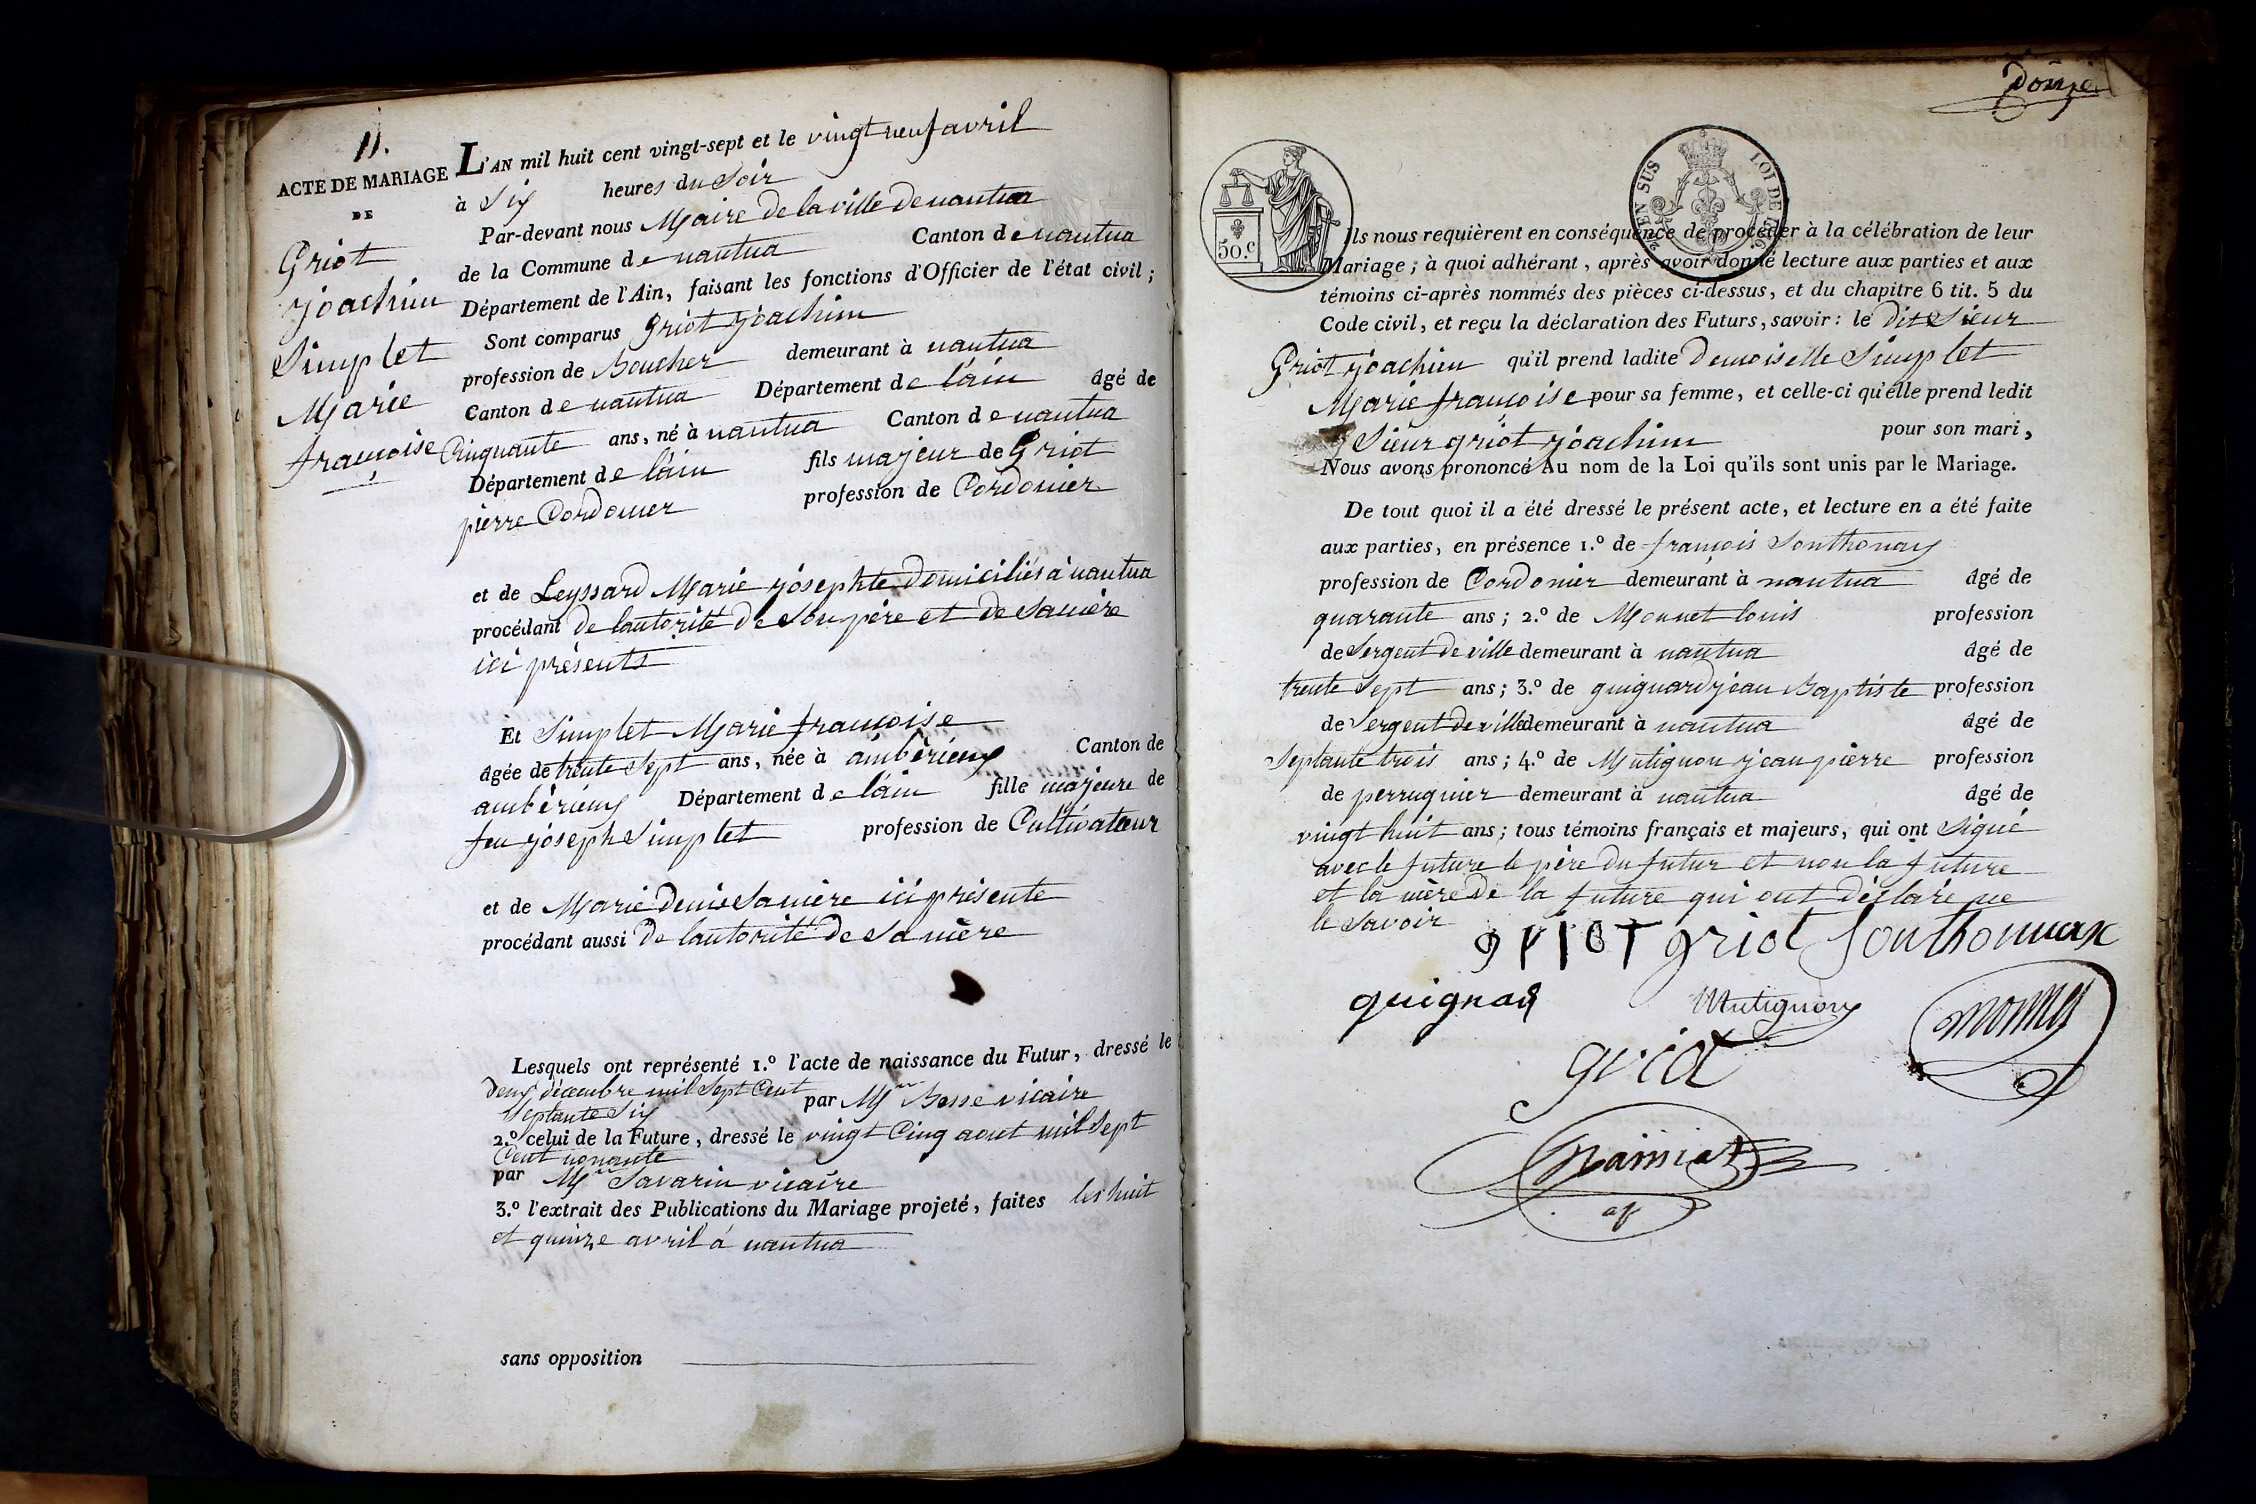 11.
ACTE DE MARIAGE
DE
Griot
joachim
Simplet
Marie
françoise
L'AN mil huit cent vingt-sept et le vingt neuf avril
à Six heures du Soir
Par-devant nous Maire de la ville de nantua
de la Commune de nantua Canton de nantua
Département de l'Ain, faisant les fonctions d'Officier de l'état civil;
Sont comparus Griot joachim
profession de Boucher demeurant à nantua
Canton de nantua Département de lain âgé de
Cinquante ans, né à nantua Canton de nantua
Département de lain fils majeur de Griot
pierre Cordonier profession de Cordonier
et de Leyssard Marie josephte domiciliés à nantua
procédant de lautorité de Son père et de Samère
ici présents
Et Simplet Marie françoise
âgée de trente Sept ans, née à ambèrieux Canton de
ambèrieux Département de lain fille majeure de
feu joseph Simplet profession de Cultivateur
et de Marie denis Samère ici présente
procédant aussi de lautorité de Samère
Lesquels ont représenté 1.º l'acte de naissance du Futur, dressé le
deux décembre mil Sept Cent
Septante Six par Mr Besse vicaire
2.º celui de la Future, dressé le vingt Cinq aout mil Sept
Cent nonante
par Mr Savarin vicaire
3.º l'extrait des Publications du Mariage projeté, faites les huit
et quinze avril à nantua
sans opposition
douze
50.c
EN SUS
LOI DE
Ils nous requièrent en conséquence de procéder à la célébration de leur
Mariage; à quoi adhérant, après avoir donné lecture aux parties et aux
témoins ci-après nommés des pièces ci-dessus, et du chapitre 6 tit. 5 du
Code civil, et reçu la déclaration des Futurs, savoir: le dit Sieur
Griot joachim qu'il prend ladite demoiselle Simplet
Marie françoise pour sa femme, et celle-ci qu'elle prend ledit
Sieur griot joachim pour son mari,
Nous avons prononcé Au nom de la Loi qu'ils sont unis par le Mariage.
De tout quoi il a été dressé le présent acte, et lecture en a été faite
aux parties, en présence 1.º de françois Sonthonax
profession de Cordonier demeurant à nantua âgé de
quarante ans; 2.º de Monnet louis profession
de Sergent de ville demeurant à nantua âgé de
trente Sept ans; 3.º de guignard jean Baptiste profession
de Sergent de ville demeurant à nantua âgé de
Septante trois ans; 4.º de Mutignon jean pierre profession
de perruquier demeurant à nantua âgé de
vingt huit ans; tous témoins français et majeurs, qui ont Signé
avec le future le père du futur et non la future
et la mère de la future qui ont déclaré ne
le Savoir
griot griot Sonthonnax
guignar Mutignon monnet
griot